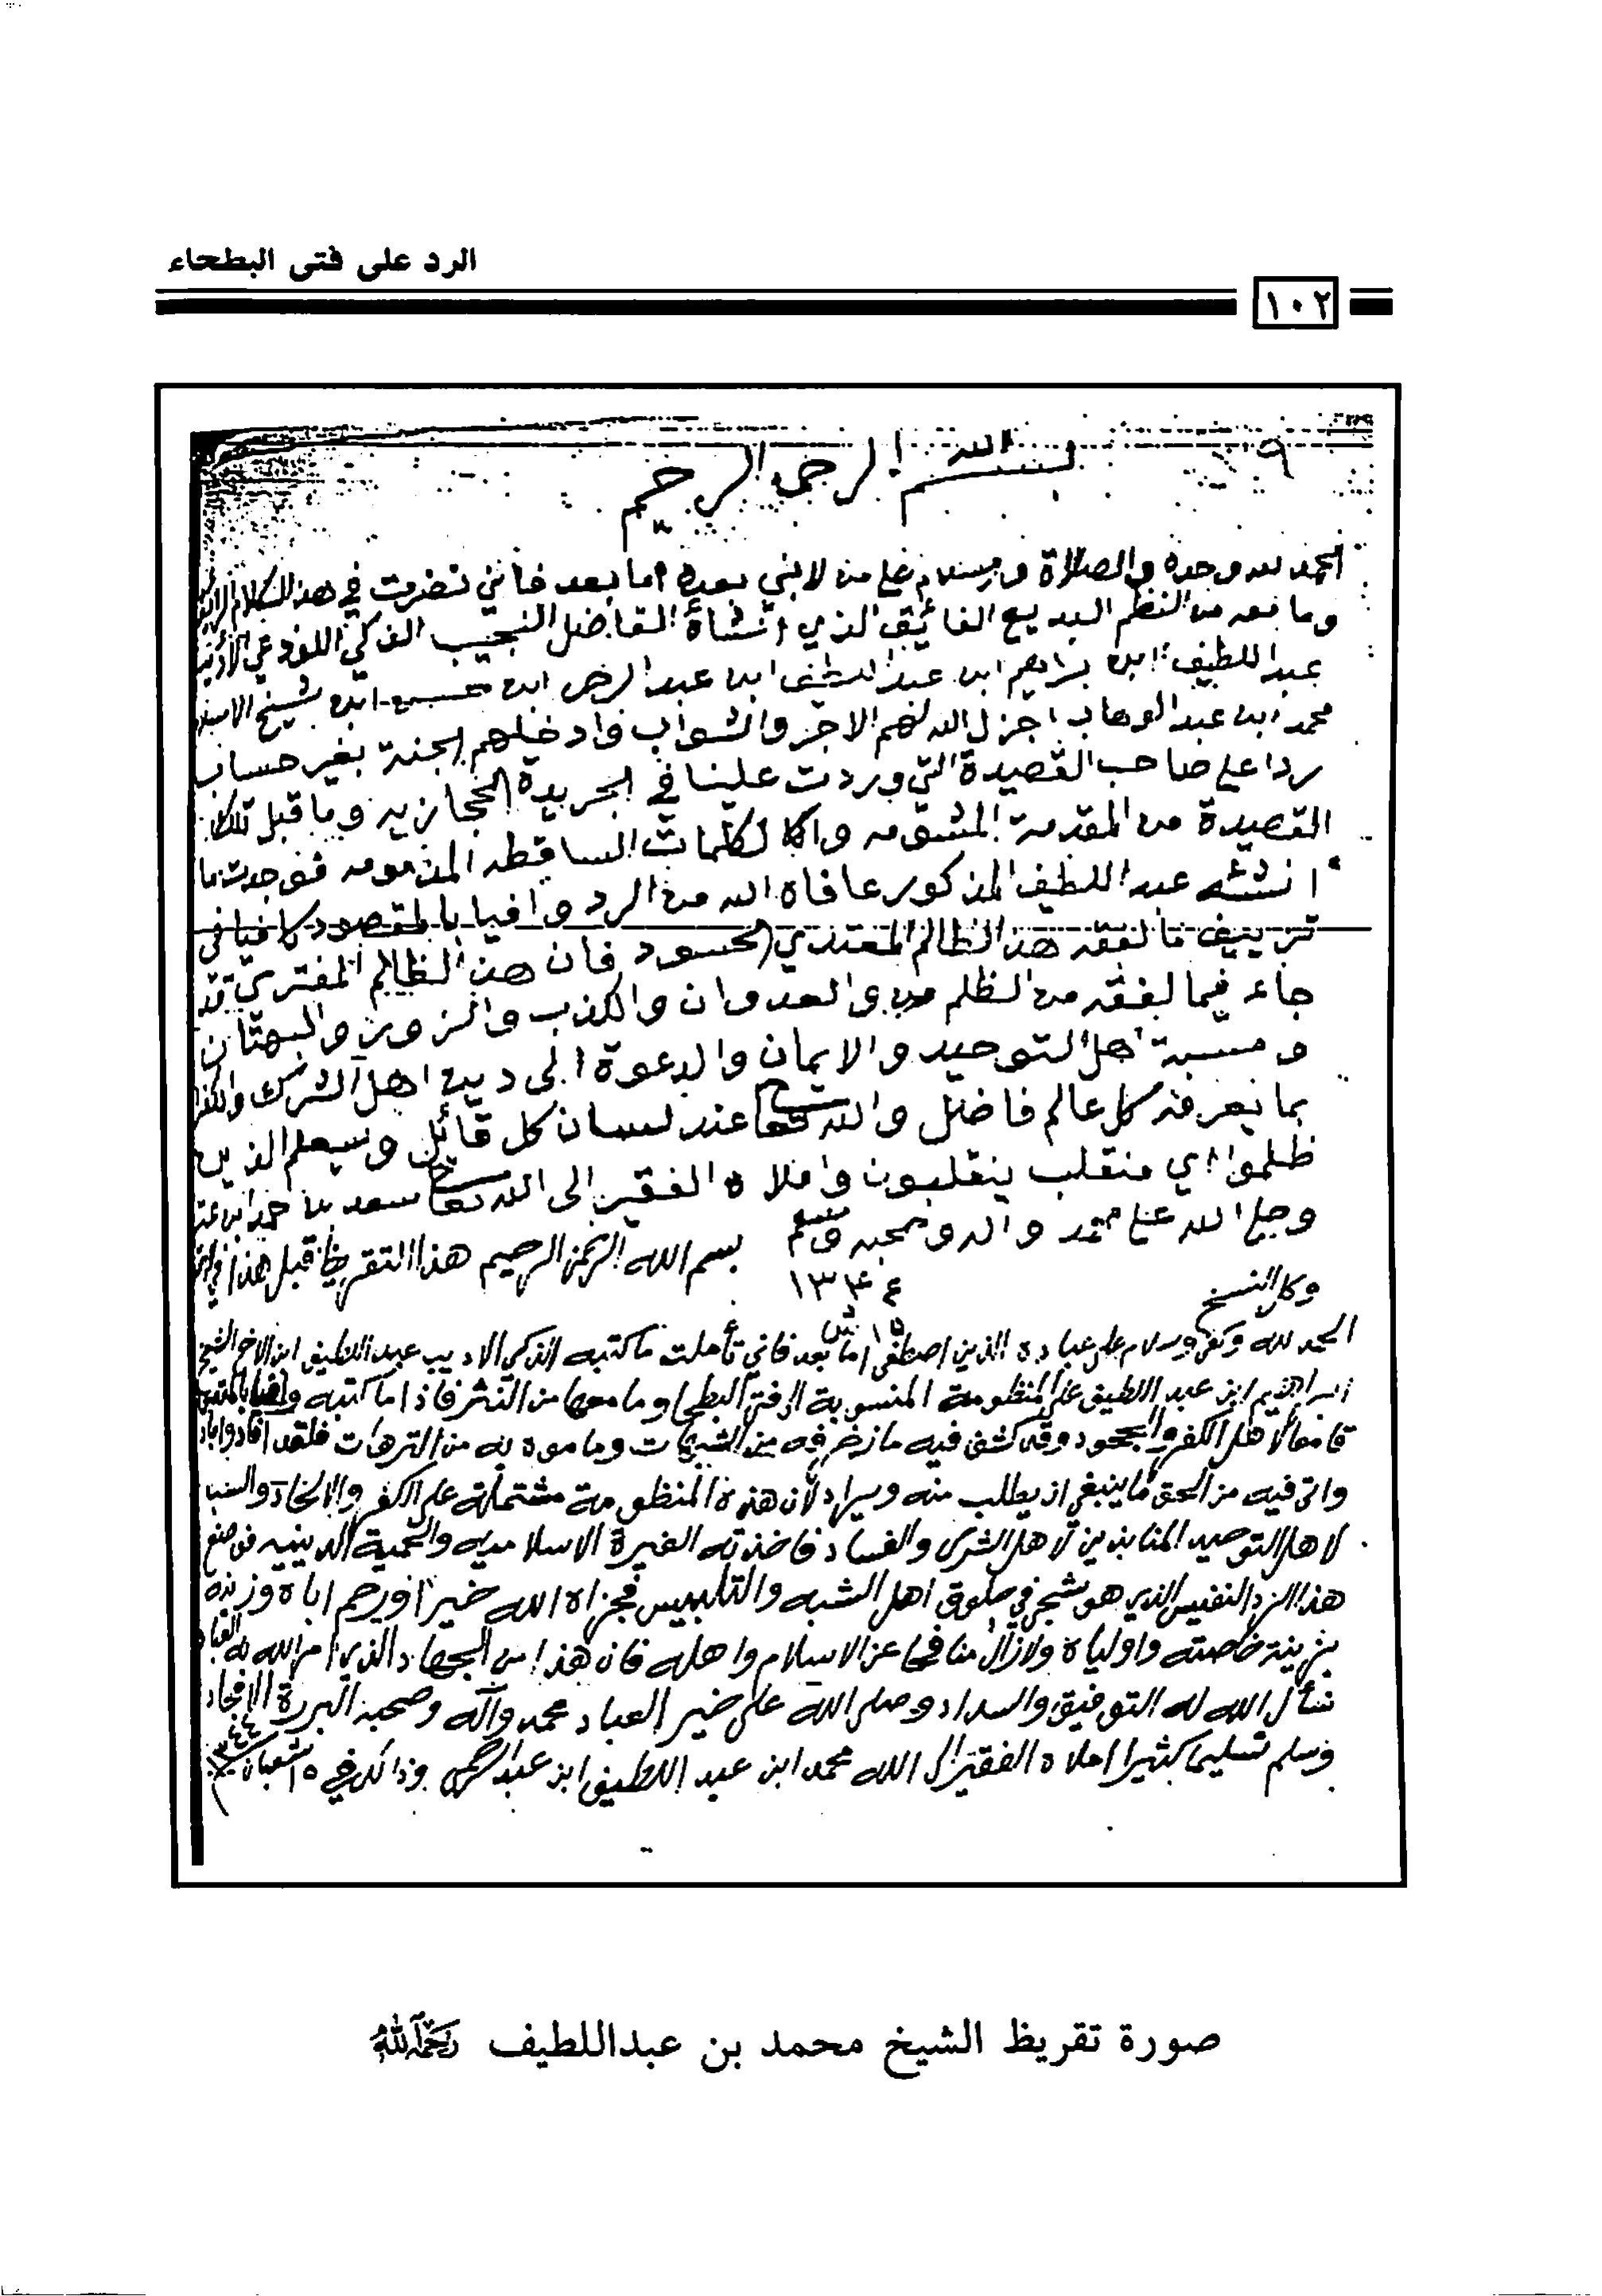 الرد على فتى البطحاء
١٠٢
بسم الله الرحمن الرحيم
الحمد لله وحده والصلاة والسلام على من لا نبي بعده اما بعد فانني نضرت في هذا الكلام
وما معه من النظم البديع الفائق الذي انشأه الفاضل النجيب الذكي اللوذعي
عبد اللطيف ابن براهيم ابن عبد اللطيف ابن عبد الرحمن ابن حسن ابن شيخ الاسلام
محمد ابن عبد الوهاب اجزل الله لهم الاجر والثواب وادخلهم الجنة بغير حساب
ردا على صاحب القصيدة التي وردت علينا في الجريدة الحجازيه وما قبل تلك
القصيدة من المقدمة المشؤمه والكلمات الساقطه المذمومه فوجدت ما
انشئه عبد اللطيف المذكور عافاه الله من الرد وافيا بالمقصود كافيا في
تزييف ما لفقه هذا الظالم المعتدي الحسود فان هذا الظالم المفتري قد
جاء فيما لفقه من الظلم والعدوان والكذب والزور والبهتان
ومسبة اهل التوحيد والايمان والدعوة الى دين اهل الشرك والكفران
بما يعرفه كل عالم فاضل والله تعا عند لسان كل قائل وسيعلم الذين
ظلموا اي منقلب ينقلبون واملاه الفقير الى الله تعا سعد بن حمد ابن عتيق
وصلى الله على محمد واله وصحبه وسلم
١٣٤٤
١٥ ش
بسم الله الرحمن الرحيم هذا التقريظ قبل هذا
وكل النسخ
الحمد لله وكفى وسلام على عباده الذين اصطفى اما بعد فاني تأملت ما كتبه الذكي الاديب عبد اللطيف ابن الاخ الشيخ
ابراهيم ابن عبد اللطيف على المنظومة المنسوبة الى فتى البطحا وما معها من النثر فاذا ما كتبه وافيا بالمقصود
قامعا لاهل الكفر والجحود وقد كشف فيه ما زخرفه من الشبهات وما موه به من الترهات فلقد افاد واجاد
واتى فيه من الحق ما ينبغي ان يطلب منه ويراد لان هذه المنظومة مشتملة على الكفر والالحاد والسباب
لاهل التوحيد المنابذين لاهل الشرك والفساد فاخذته الغيرة الاسلاميه والحمية الدينيه فوضع
هذا الرد النفيس الذي هو شجى في حلوق اهل الشبه والتلبيس فجزاه الله خيرا ورحم اباه وزينه
بزينة خاصته واولياه ولازال منافحا عن الاسلام واهله فان هذا من الجهاد الذي امر الله به العباد
نسأل الله له التوفيق والسداد وصلى الله على خير العباد محمد وآله وصحبه البررة الامجاد
وسلم تسليما كثيرا املاه الفقير الى الله محمد ابن عبد اللطيف ابن عبد الرحمن وذالك في ١٥ شعبان ١٣٤٤
صورة تقريظ الشيخ محمد بن عبداللطيف رحمه الله